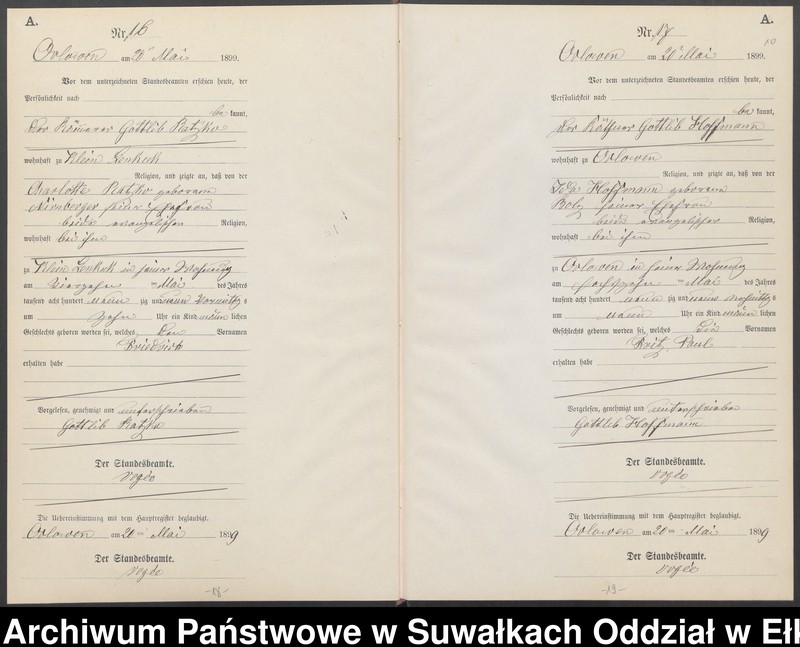 A.
Nr. 16
Orlowen am 20n Mai 1899.
Vor dem unterzeichneten Standesbeamten erschien heute, der
Persönlichkeit nach
be kannt,
Der Gottlib Ratzko
wohnhaft zu Klein Lenkuk
Religion, und zeigte an, daß von der
Charlotte Ratzko geborenen
Nirnberger seiner Ehefrau
beide evangelischer Religion,
wohnhaft bei ihm
zu Klein Lenkuk in seiner Wohnung
am vierzehn ten Mai des Jahres
tausend acht hundert neun zig und neun Vormittag s
um zehn Uhr ein Kind männ lichen
Geschlechts geboren worden sei, welches den Vornamen
Friedrich
erhalten habe
Vorgelesen, genehmigt und unterschrieben
Gottlib Ratzko
Der Standesbeamte.
Die Uebereinstimmung mit dem Hauptregister beglaubigt.
Orlowen am 20 ten Mai 1899
Der Standesbeamte.
-18-
A.
Nr. 17
Orlowen am 20n Mai 1899.
Vor dem unterzeichneten Standesbeamten erschien heute, der
Persönlichkeit nach
be kannt,
Der Käthner Gottlib Hoffmann
wohnhaft zu Orlowen
Religion, und zeigte an, daß von der
Ida Hoffmann geborenen
seiner Ehefrau
beide evangelischer Religion,
wohnhaft bei ihm
zu Orlowen in seiner Wohnung
am sechszehn ten Mai des Jahres
tausend acht hundert neun zig und neun Vormittag s
um neun Uhr ein Kind männ lichen
Geschlechts geboren worden sei, welches die Vornamen
Fritz Paul
erhalten habe
Vorgelesen, genehmigt und unterschrieben
Gottlib Hoffmann
Der Standesbeamte.
Die Uebereinstimmung mit dem Hauptregister beglaubigt.
Orlowen am 20 ten Mai 1899
Der Standesbeamte.
-19-
Archiwum Państwowe w Suwałkach Oddział w Ełk